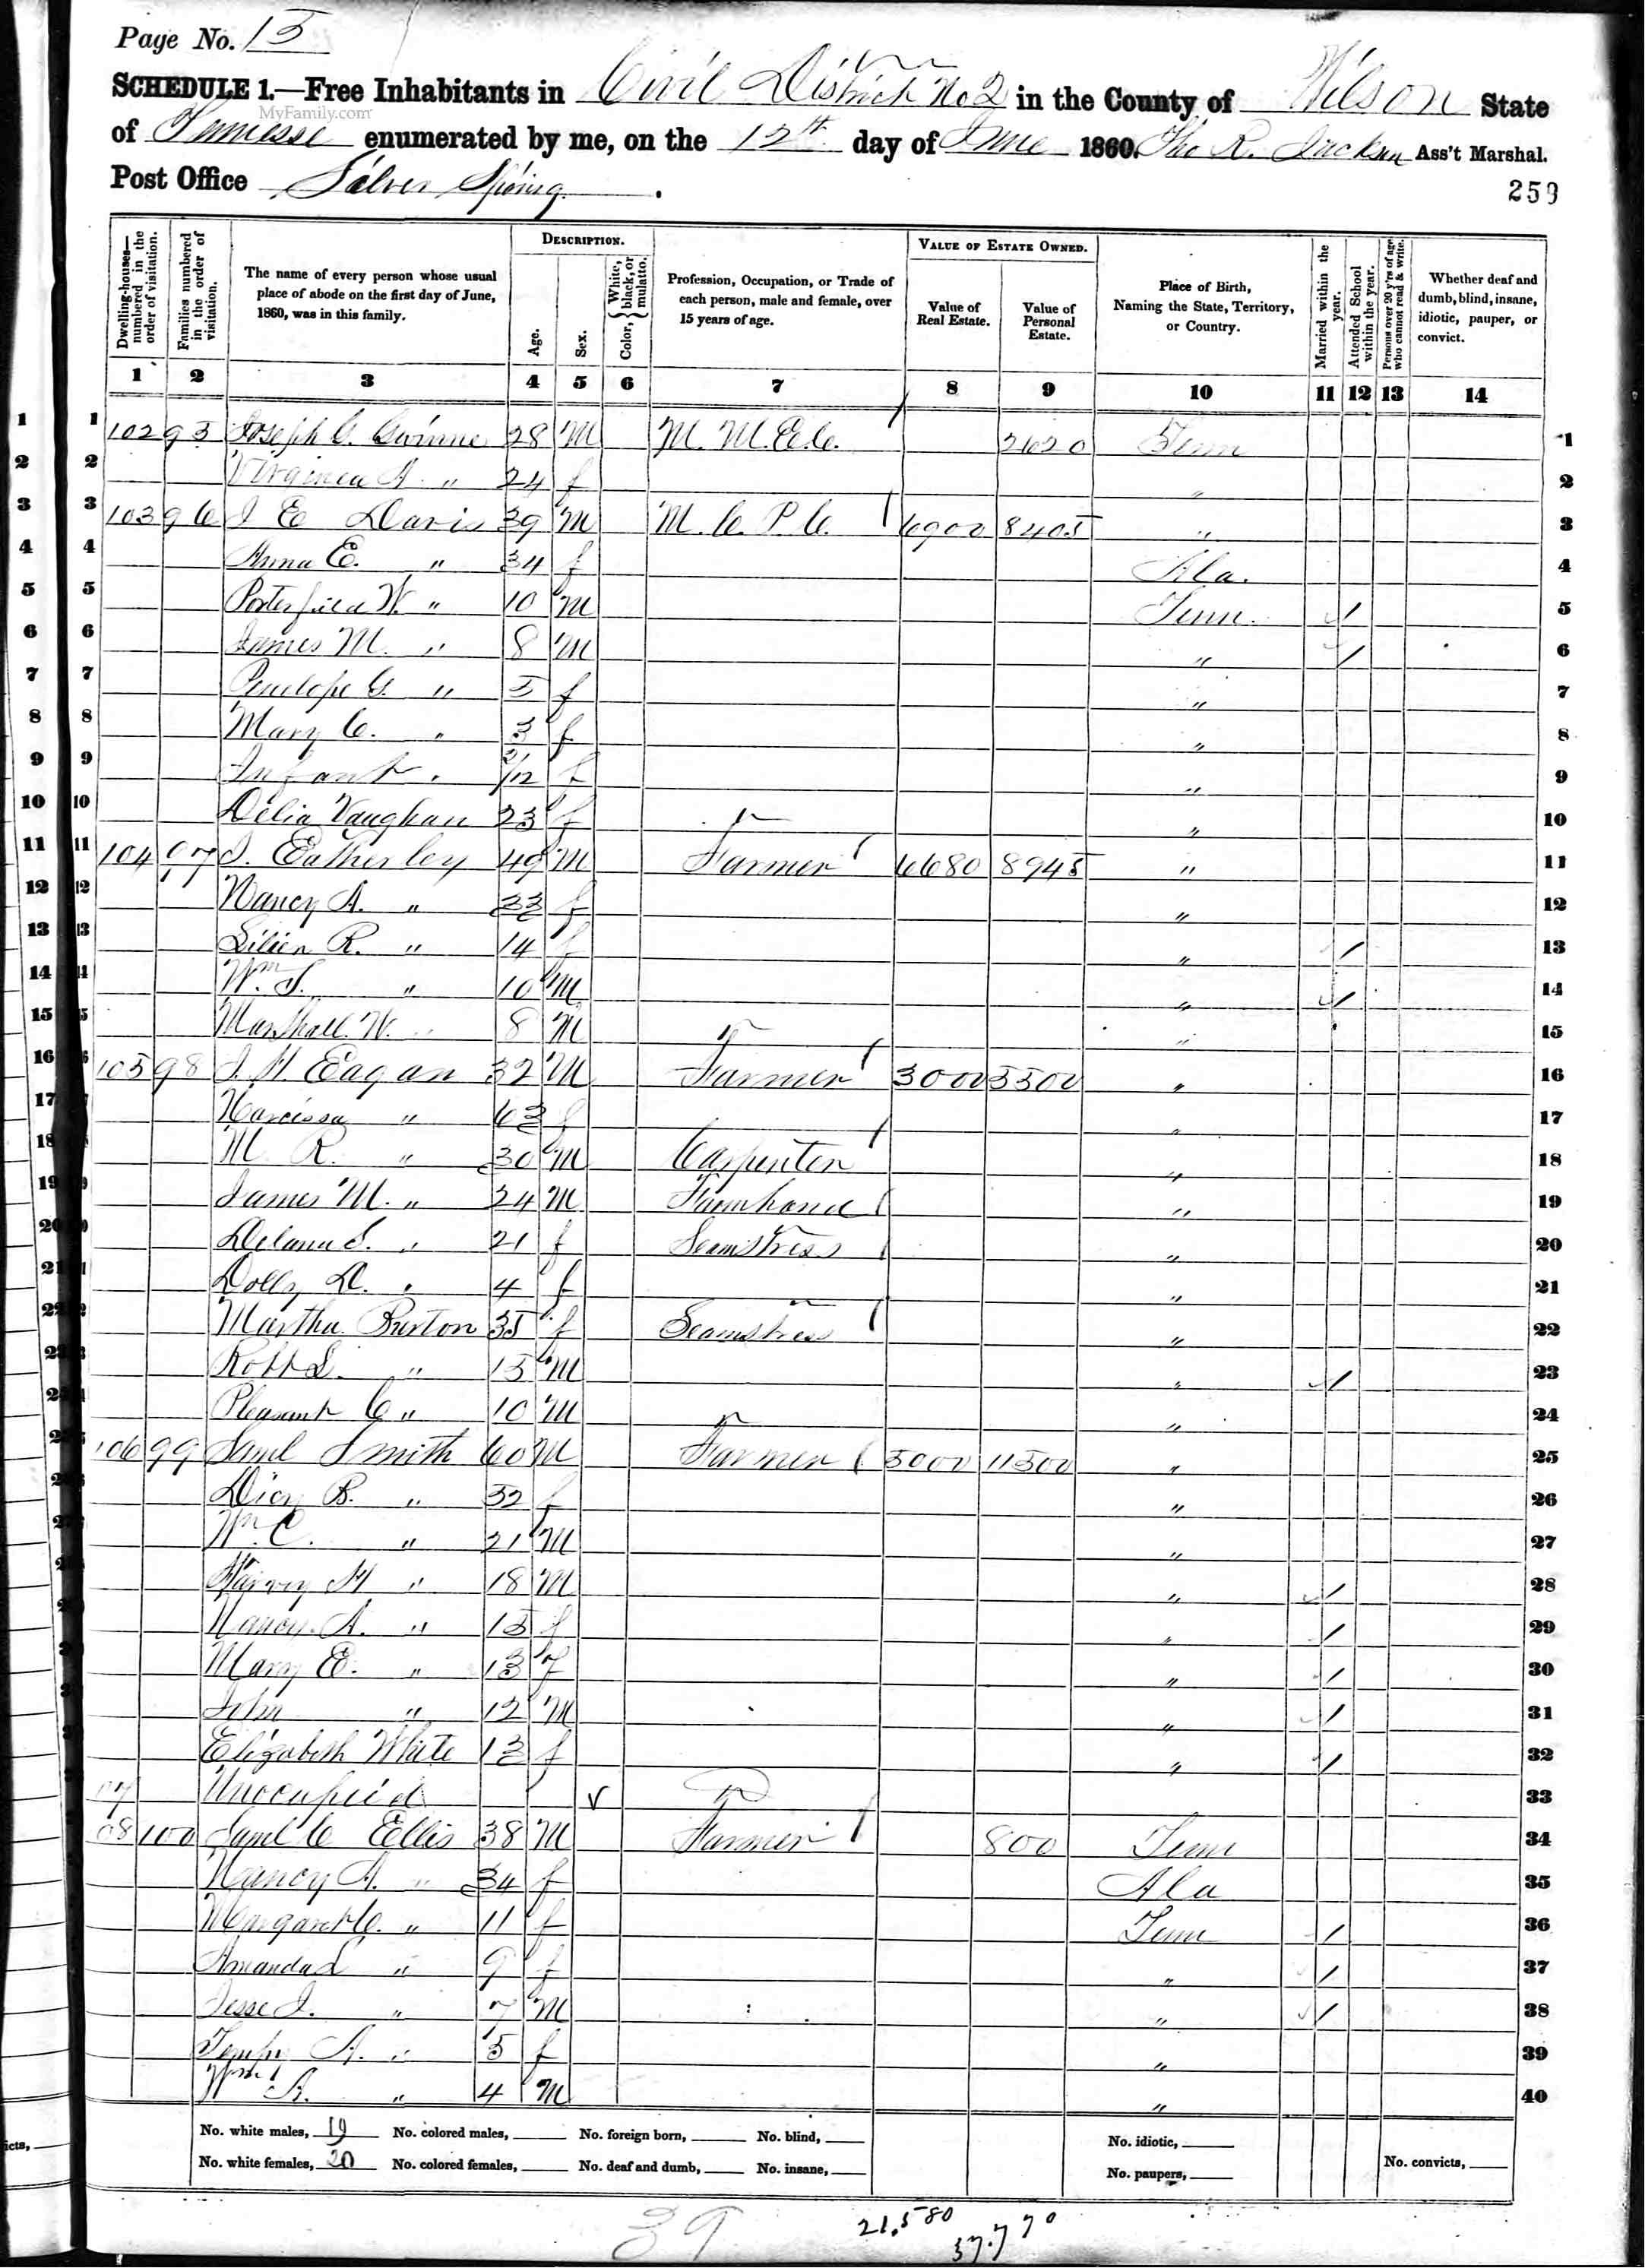 Page No. 15
SCHEDULE 1.—Free Inhabitants in Civil District No 2 in the County of Wilson State
MyFamily.com
of Tennessee enumerated by me, on the 12th day of June 1860. Tho R. Jackson Ass't Marshal.
Post Office Silver Spring.
259
DESCRIPTION. VALUE OF ESTATE OWNED.
Dwelling-houses—numbered in the order of visitation.
Families numbered in the order of visitation.
The name of every person whose usual place of abode on the first day of June, 1860, was in this family.
Age.
Sex.
Color, { White, black, or mulatto.
Profession, Occupation, or Trade of each person, male and female, over 15 years of age.
Value of Real Estate.
Value of Personal Estate.
Place of Birth, Naming the State, Territory, or Country.
Married within the year.
Attended School within the year.
Persons over 20 y'rs of age who cannot read & write.
Whether deaf and dumb, blind, insane, idiotic, pauper, or convict.
1 2 3 4 5 6 7 8 9 10 11 12 13 14
1 102 95 Joseph G. 28 M M. M.E.C. 2620 Tenn 1
2 Virginia A. " 24 f " 2
3 103 96 J E Davis 39 M M. C. P. C. 6900 8405 " 3
4 Anna E. " 34 f Ala. 4
5 Porterfield W. " 10 M Tenn. / 5
6 James M. " 8 M " / 6
7 Penelope G. " 5 f " 7
8 Mary C. " 3 f " 8
9 Infant " 2/12 f " 9
10 Delia Vaughan 23 f " 10
11 104 97 J. Eatherley 49 M Farmer 6680 8945 " 11
12 Nancy A. " 33 f " 12
13 R. " 14 f " / 13
14 Wm S. " 10 M " / 14
15 Marshall W. " 8 M " 15
16 105 98 J. H. Eagan 32 M Farmer 3000 5500 " 16
17 Narcissa " 63 f " 17
18 M R. " 30 M Carpenter " 18
19 James M. " 24 M Farmhand " 19
20 S. " 21 f Seamstress " 20
21 Dolly D. " 4 f " 21
22 Martha Burton 35 f Seamstress " 22
23 Robt L. " 15 M " / 23
24 Pleasant C " 10 M " 24
25 106 99 Saml Smith 60 M Farmer 5000 11500 " 25
26 Dicy B. " 52 f " 26
27 Wm C. " 21 M " 27
28 Harvey H " 18 M " / 28
29 Nancy A. " 15 f " / 29
30 Mary E. " 13 f " / 30
31 John " 12 M " / 31
32 Elizabeth White 13 f " / 32
33 107 Unocupied 33
34 108 100 Saml C Ellis 38 M Farmer 800 Tenn 34
35 Nancy A. " 34 f Ala 35
36 Margaret C. " 11 f Tenn / 36
37 Amanda L " 9 f " / 37
38 Jesse J. " 7 M " / 38
39 Tempy A. " 5 f " 39
40 Wm A. " 4 M " 40
No. white males, 19 No. colored males, No. foreign born, No. blind, No. idiotic,
No. white females, 20 No. colored females, No. deaf and dumb, No. insane, No. paupers, No. convicts,
39 21,580 37,770